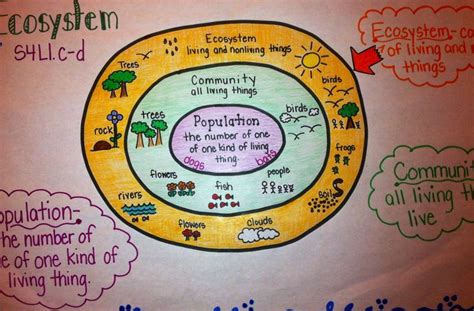 cosystem
S4L1.c-d
Ecosystem
living and nonliving things
Trees
birds
Community
all living things
trees
birds
rock
Population
the number of one
of one kind of living
thing.
dogs bats
frogs
flowers
fish
people
rivers
soil
flowers
clouds
Ecosystem- co
of living and
things
Communit
all living th
live
opulation-
the number of
e of one kind of
living thing.